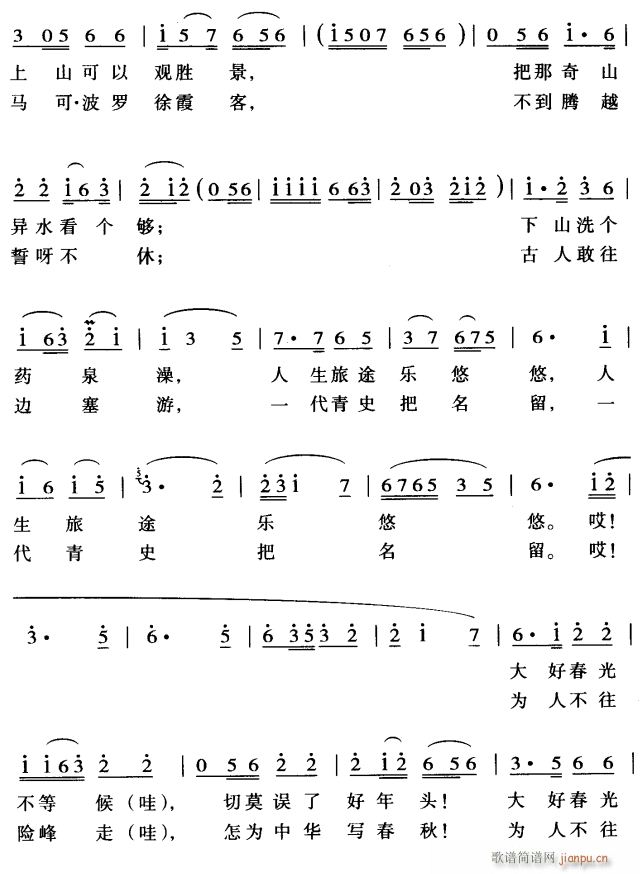 3 05 6 6 | i 57 6 56 | (i507 656) | 0 56 i· 6
上 山 可 以 观胜 景, 把那奇山
马 可·波 罗 徐霞 客, 不到腾越
2 2 i63 | 2 i2 (056 | iiii 663 | 2 03 2i2) | i· 2 3 6 |
异水看个 够; 下山洗个
誓呀不 休; 古人敢往
i 63 2 i | i 3 5 | 7· 7 6 5 | 3 7 675 | 6· i |
药 泉 澡, 人 生旅途乐悠 悠,人
边 塞 游, 一 代青史把名 留,一
i 6 i 5 | 3 3· 2 | 23i 7 | 6765 3 5 | 6· i2 |
生 旅 途 乐 悠 悠。哎!
代 青 史 把 名 留。哎!
3· 5 | 6· 5 | 6 353 2 | 2 i 7 | 6· i 2 2 |
大 好春光
为 人不往
i i63 2 2 | 0 56 2 2 | 2 i2 6 56 | 3· 5 6 6 |
不等 候(哇), 切莫误了 好年头! 大 好春光
险峰 走(哇), 怎为中华 写春秋! 为 人不往
歌谱简谱网 jianpu.cn